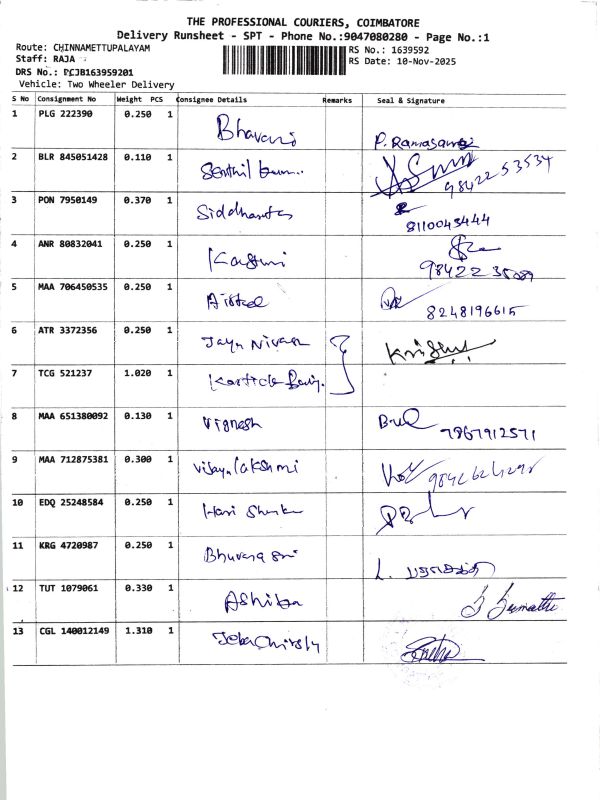 THE PROFESSIONAL COURIERS, COIMBATORE
Delivery Runsheet - SPT - Phone No.:9047080280 - Page No.:1
Route: CHINNAMETTUPALAYAM RS No.: 1639592
Staff: RAJA RS Date: 10-Nov-2025
DRS No.: PCJB163959201
Vehicle: Two Wheeler Delivery
S No Consignment No Weight PCS Consignee Details Remarks Seal & Signature
1 PLG 222390 0.250 1 Bhavani P. Ramasamy
2 BLR 845051428 0.110 1 Senthil 98422 53534
3 PON 7950149 0.370 1 Siddhantes 8110043444
4 ANR 80832041 0.250 1
5 MAA 706450535 0.250 1 Airtel 8248196615
6 ATR 3372356 0.250 1 Jaya Nivash Krishna
7 TCG 521237 1.020 1
8 MAA 651380092 0.130 1 Vignesh 7867912571
9 MAA 712875381 0.300 1 Vijayalakshmi
10 EDQ 25248584 0.250 1 Hari
11 KRG 4720987 0.250 1 Bhuvana sri
12 TUT 1079061 0.330 1 Ashiba Sumathi
13 CGL 140012149 1.310 1